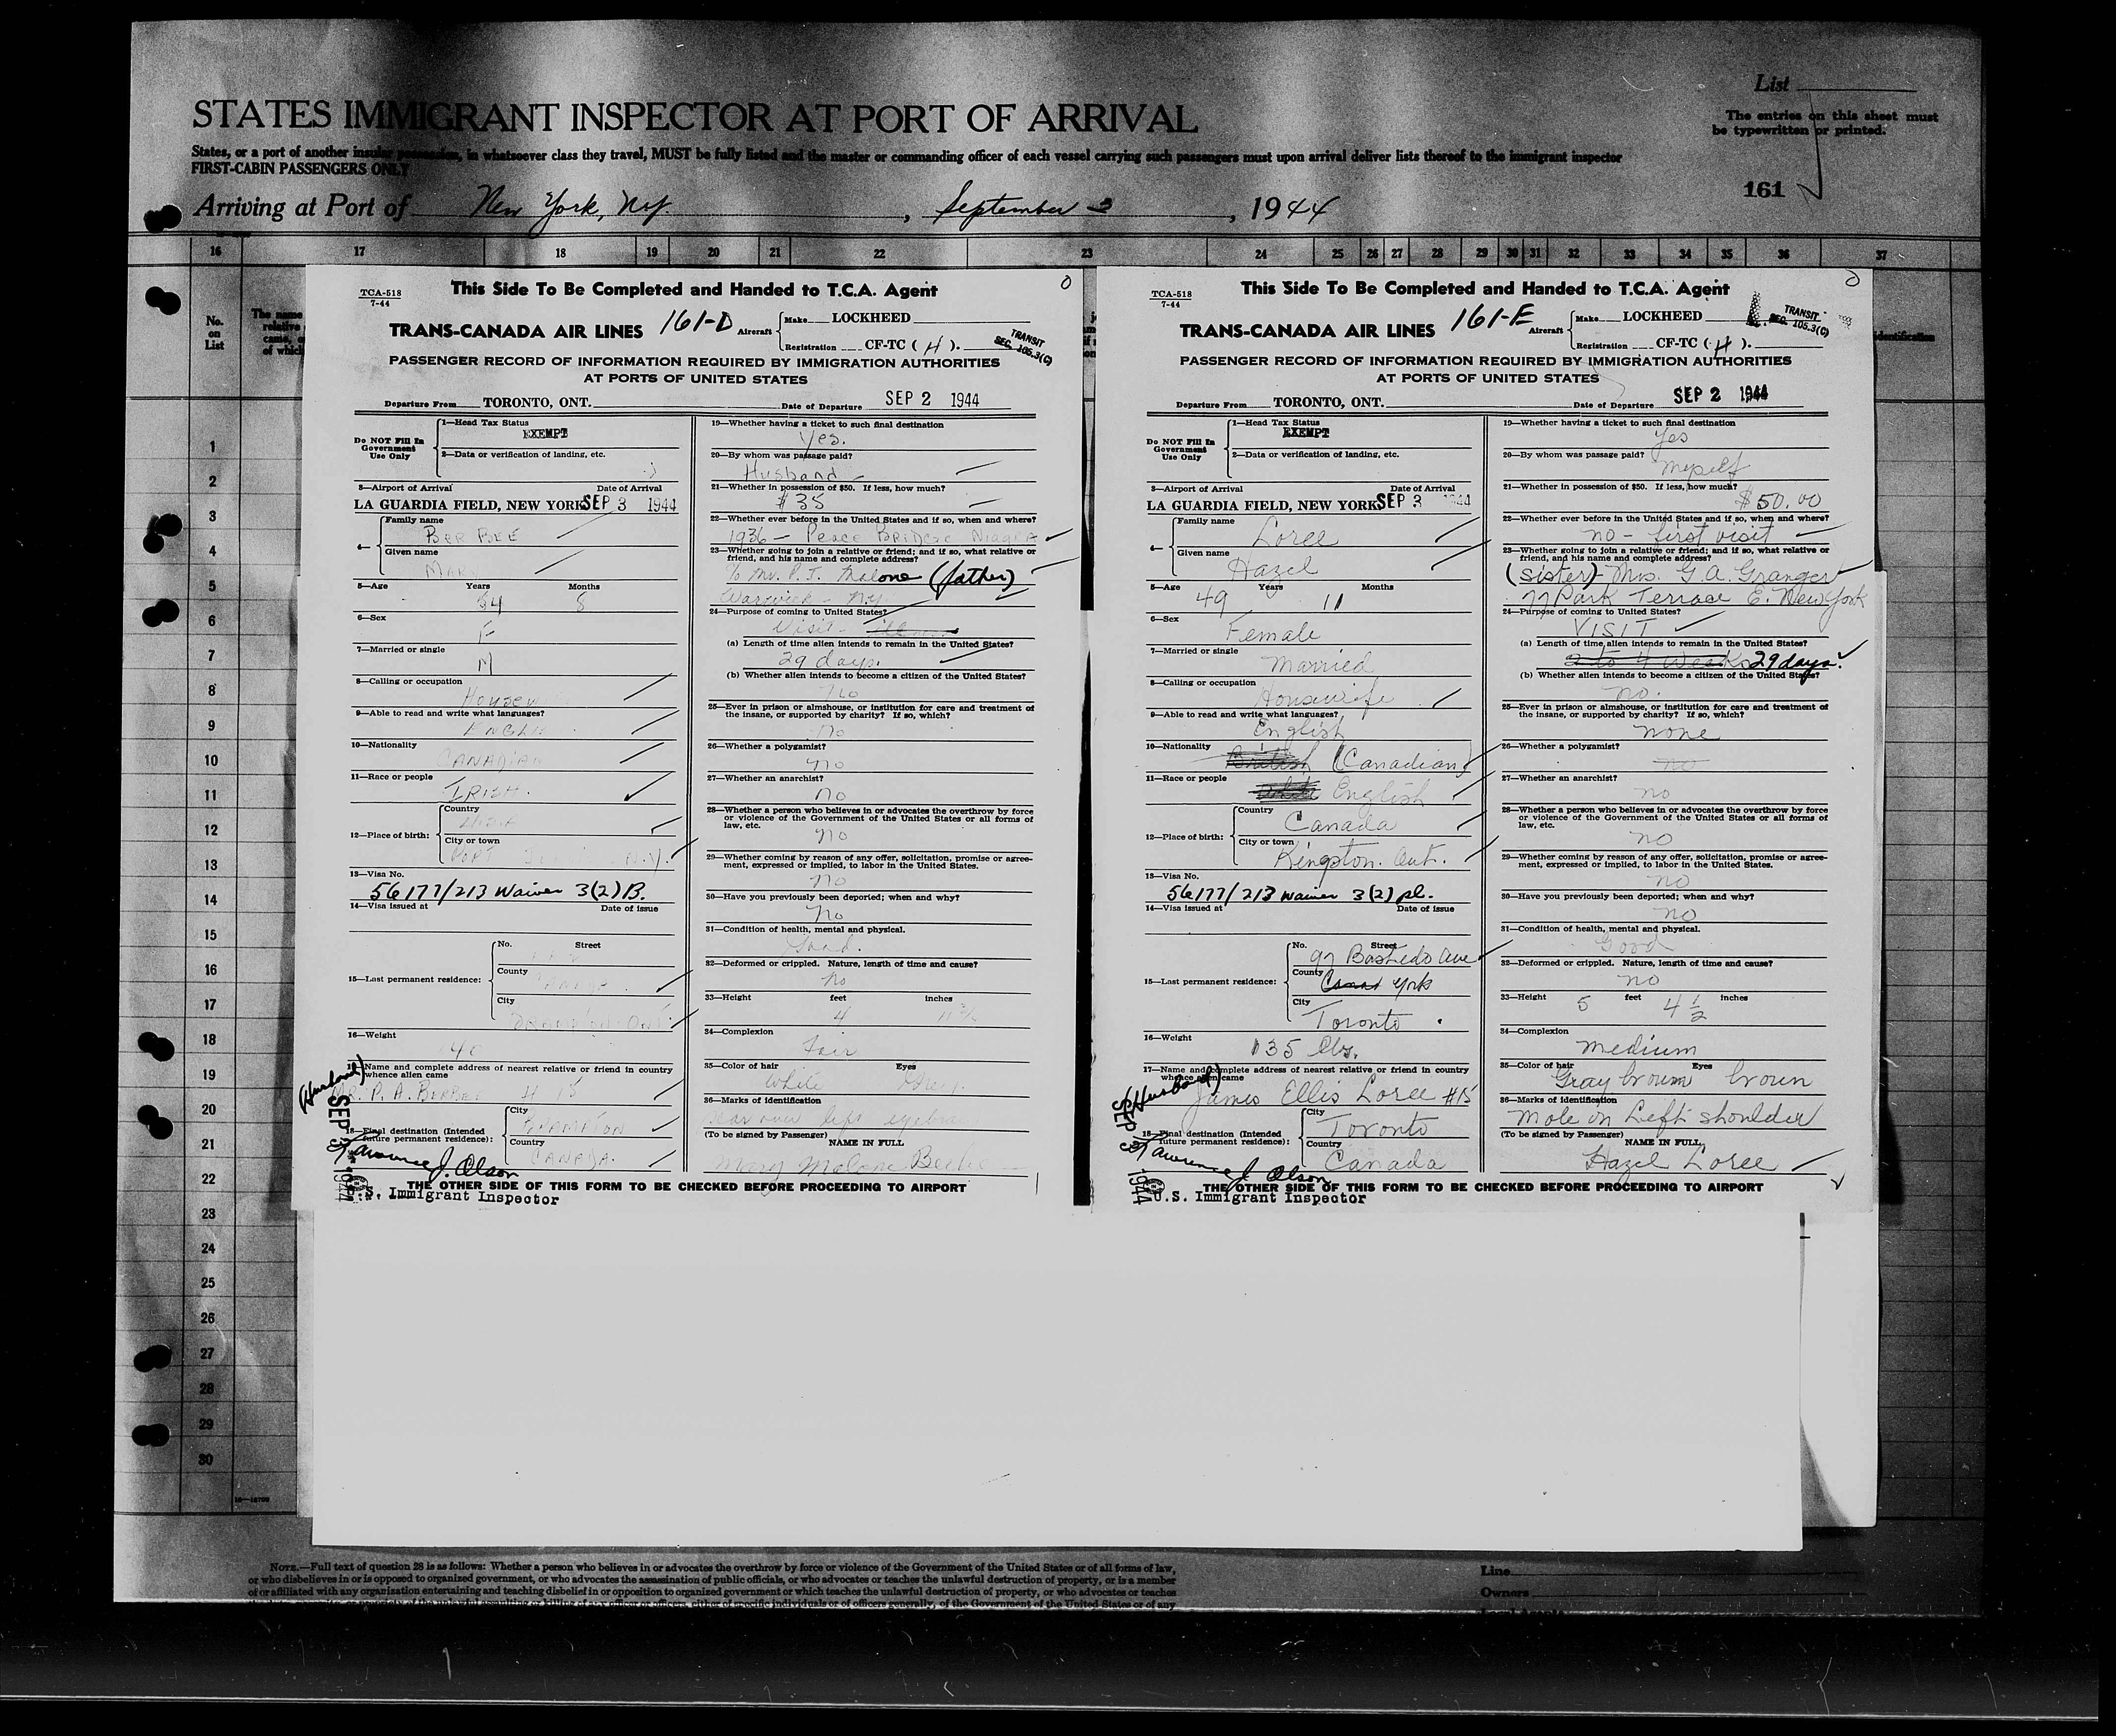 STATES IMMIGRANT INSPECTOR AT PORT OF ARRIVAL
List
The entries on this sheet must
be typewritten or printed.
States, or a port of another insular possession, in whatsoever class they travel, MUST be fully listed and the master or commanding officer of each vessel carrying such passengers must upon arrival deliver lists thereof to the immigrant inspector
FIRST-CABIN PASSENGERS ONLY
161
Arriving at Port of New York, N.Y. , September 3 , 1944
16 17 18 19 20 21 22 23 24 25 26 27 28 29 30 31 32 33 34 35 36 37
No.
on
List
1
2
3
4
5
6
7
8
9
10
11
12
13
14
15
16
17
18
19
20
21
22
23
24
25
26
27
28
29
30
TCA-518
7-44
This Side To Be Completed and Handed to T.C.A. Agent
TRANS-CANADA AIR LINES 161-D Aircraft
Make LOCKHEED
Registration CF-TC ( H ).
TRANSIT
SEC. 105.3(C)
PASSENGER RECORD OF INFORMATION REQUIRED BY IMMIGRATION AUTHORITIES
AT PORTS OF UNITED STATES
Departure From TORONTO, ONT. Date of Departure SEP 2 1944
Do NOT Fill In
Government
Use Only
1—Head Tax Status
EXEMPT
2—Data or verification of landing, etc.
3—Airport of Arrival Date of Arrival
LA GUARDIA FIELD, NEW YORK SEP 3 1944
4—
Family name
BERBEE
Given name
MARY
5—Age Years Months
54 8
6—Sex
F
7—Married or single
M
8—Calling or occupation
HOUSEW
9—Able to read and write what languages?
ENGLI
10—Nationality
CANADIAN
11—Race or people
IRISH.
12—Place of birth:
Country
City or town
PORT N.Y.
13—Visa No.
56177/213 Waiver 3(2)B.
14—Visa issued at Date of issue
15—Last permanent residence:
No. Street
County
City
16—Weight
140
17—Name and complete address of nearest relative or friend in country
whence alien came
(Husband)
MR. P. A. BERBEE # 15
18—Final destination (Intended
future permanent residence):
City
BRAMPTON
Country
CANADA.
SEP 3 1944
Lawrence J. Olson
U.S. Immigrant Inspector
19—Whether having a ticket to such final destination
Yes.
20—By whom was passage paid?
Husband
21—Whether in possession of $50. If less, how much?
$35
22—Whether ever before in the United States and if so, when and where?
1936 — Peace BRIDGE NIAGRA
23—Whether going to join a relative or friend; and if so, what relative or
friend, and his name and complete address?
% Mr. P. J. Malone (father)
Warwick - N.Y.
24—Purpose of coming to United States?
Visit -
(a) Length of time alien intends to remain in the United States?
29 days.
(b) Whether alien intends to become a citizen of the United States?
No
25—Ever in prison or almshouse, or institution for care and treatment of
the insane, or supported by charity? If so, which?
no
26—Whether a polygamist?
no
27—Whether an anarchist?
no
28—Whether a person who believes in or advocates the overthrow by force
or violence of the Government of the United States or all forms of
law, etc.
no
29—Whether coming by reason of any offer, solicitation, promise or agree-
ment, expressed or implied, to labor in the United States.
no
30—Have you previously been deported; when and why?
No
31—Condition of health, mental and physical.
Good.
32—Deformed or crippled. Nature, length of time and cause?
No
33—Height feet inches
4 11
34—Complexion
Fair
35—Color of hair Eyes
White Grey.
36—Marks of identification
Scar over left eyebrow
(To be signed by Passenger) NAME IN FULL
Mary Malone Berbee
THE OTHER SIDE OF THIS FORM TO BE CHECKED BEFORE PROCEEDING TO AIRPORT
TCA-518
7-44
This Side To Be Completed and Handed to T.C.A. Agent
TRANS-CANADA AIR LINES 161-E Aircraft
Make LOCKHEED
Registration CF-TC ( H ).
TRANSIT
SEC. 105.3(C)
PASSENGER RECORD OF INFORMATION REQUIRED BY IMMIGRATION AUTHORITIES
AT PORTS OF UNITED STATES
Departure From TORONTO, ONT. Date of Departure SEP 2 1944
Do NOT Fill In
Government
Use Only
1—Head Tax Status
EXEMPT
2—Data or verification of landing, etc.
3—Airport of Arrival Date of Arrival
LA GUARDIA FIELD, NEW YORK SEP 3 1944
4—
Family name
Loree
Given name
Hazel
5—Age Years Months
49 11
6—Sex
Female
7—Married or single
Married
8—Calling or occupation
Housewife
9—Able to read and write what languages?
English
10—Nationality
British (Canadian)
11—Race or people
White English
12—Place of birth:
Country
Canada
City or town
Kingston. Ont.
13—Visa No.
56177/213 Waiver 3(2) pl.
14—Visa issued at Date of issue
15—Last permanent residence:
No. Street
97 Bastedo Ave
County
York
City
Toronto
16—Weight
135 lbs.
17—Name and complete address of nearest relative or friend in country
whence alien came
(Husband)
James Ellis Loree #15
18—Final destination (Intended
future permanent residence):
City
Toronto
Country
Canada
SEP 3 1944
Lawrence J. Olson
U.S. Immigrant Inspector
19—Whether having a ticket to such final destination
Yes
20—By whom was passage paid?
Myself
21—Whether in possession of $50. If less, how much?
$50.00
22—Whether ever before in the United States and if so, when and where?
no - first visit
23—Whether going to join a relative or friend; and if so, what relative or
friend, and his name and complete address?
(sister) Mrs. G. A. Granger
77 Park Terrace E. New York
24—Purpose of coming to United States?
VISIT
(a) Length of time alien intends to remain in the United States?
2 to 4 Weeks 29 days.
(b) Whether alien intends to become a citizen of the United States?
no.
25—Ever in prison or almshouse, or institution for care and treatment of
the insane, or supported by charity? If so, which?
none
26—Whether a polygamist?
no
27—Whether an anarchist?
no
28—Whether a person who believes in or advocates the overthrow by force
or violence of the Government of the United States or all forms of
law, etc.
no
29—Whether coming by reason of any offer, solicitation, promise or agree-
ment, expressed or implied, to labor in the United States.
no
30—Have you previously been deported; when and why?
no
31—Condition of health, mental and physical.
Good
32—Deformed or crippled. Nature, length of time and cause?
no
33—Height 5 feet 4 1/2 inches
34—Complexion
medium
35—Color of hair Eyes
Gray brown brown
36—Marks of identification
Mole on Left shoulder
(To be signed by Passenger) NAME IN FULL
Hazel Loree
THE OTHER SIDE OF THIS FORM TO BE CHECKED BEFORE PROCEEDING TO AIRPORT
NOTE.—Full text of question 28 is as follows: Whether a person who believes in or advocates the overthrow by force or violence of the Government of the United States or of all forms of law,
or who disbelieves in or is opposed to organized government, or who advocates the assassination of public officials, or who advocates or teaches the unlawful destruction of property, or is a member
of or affiliated with any organization entertaining and teaching disbelief in or opposition to organized government or which teaches the unlawful destruction of property, or who advocates or teaches
Line
Owners